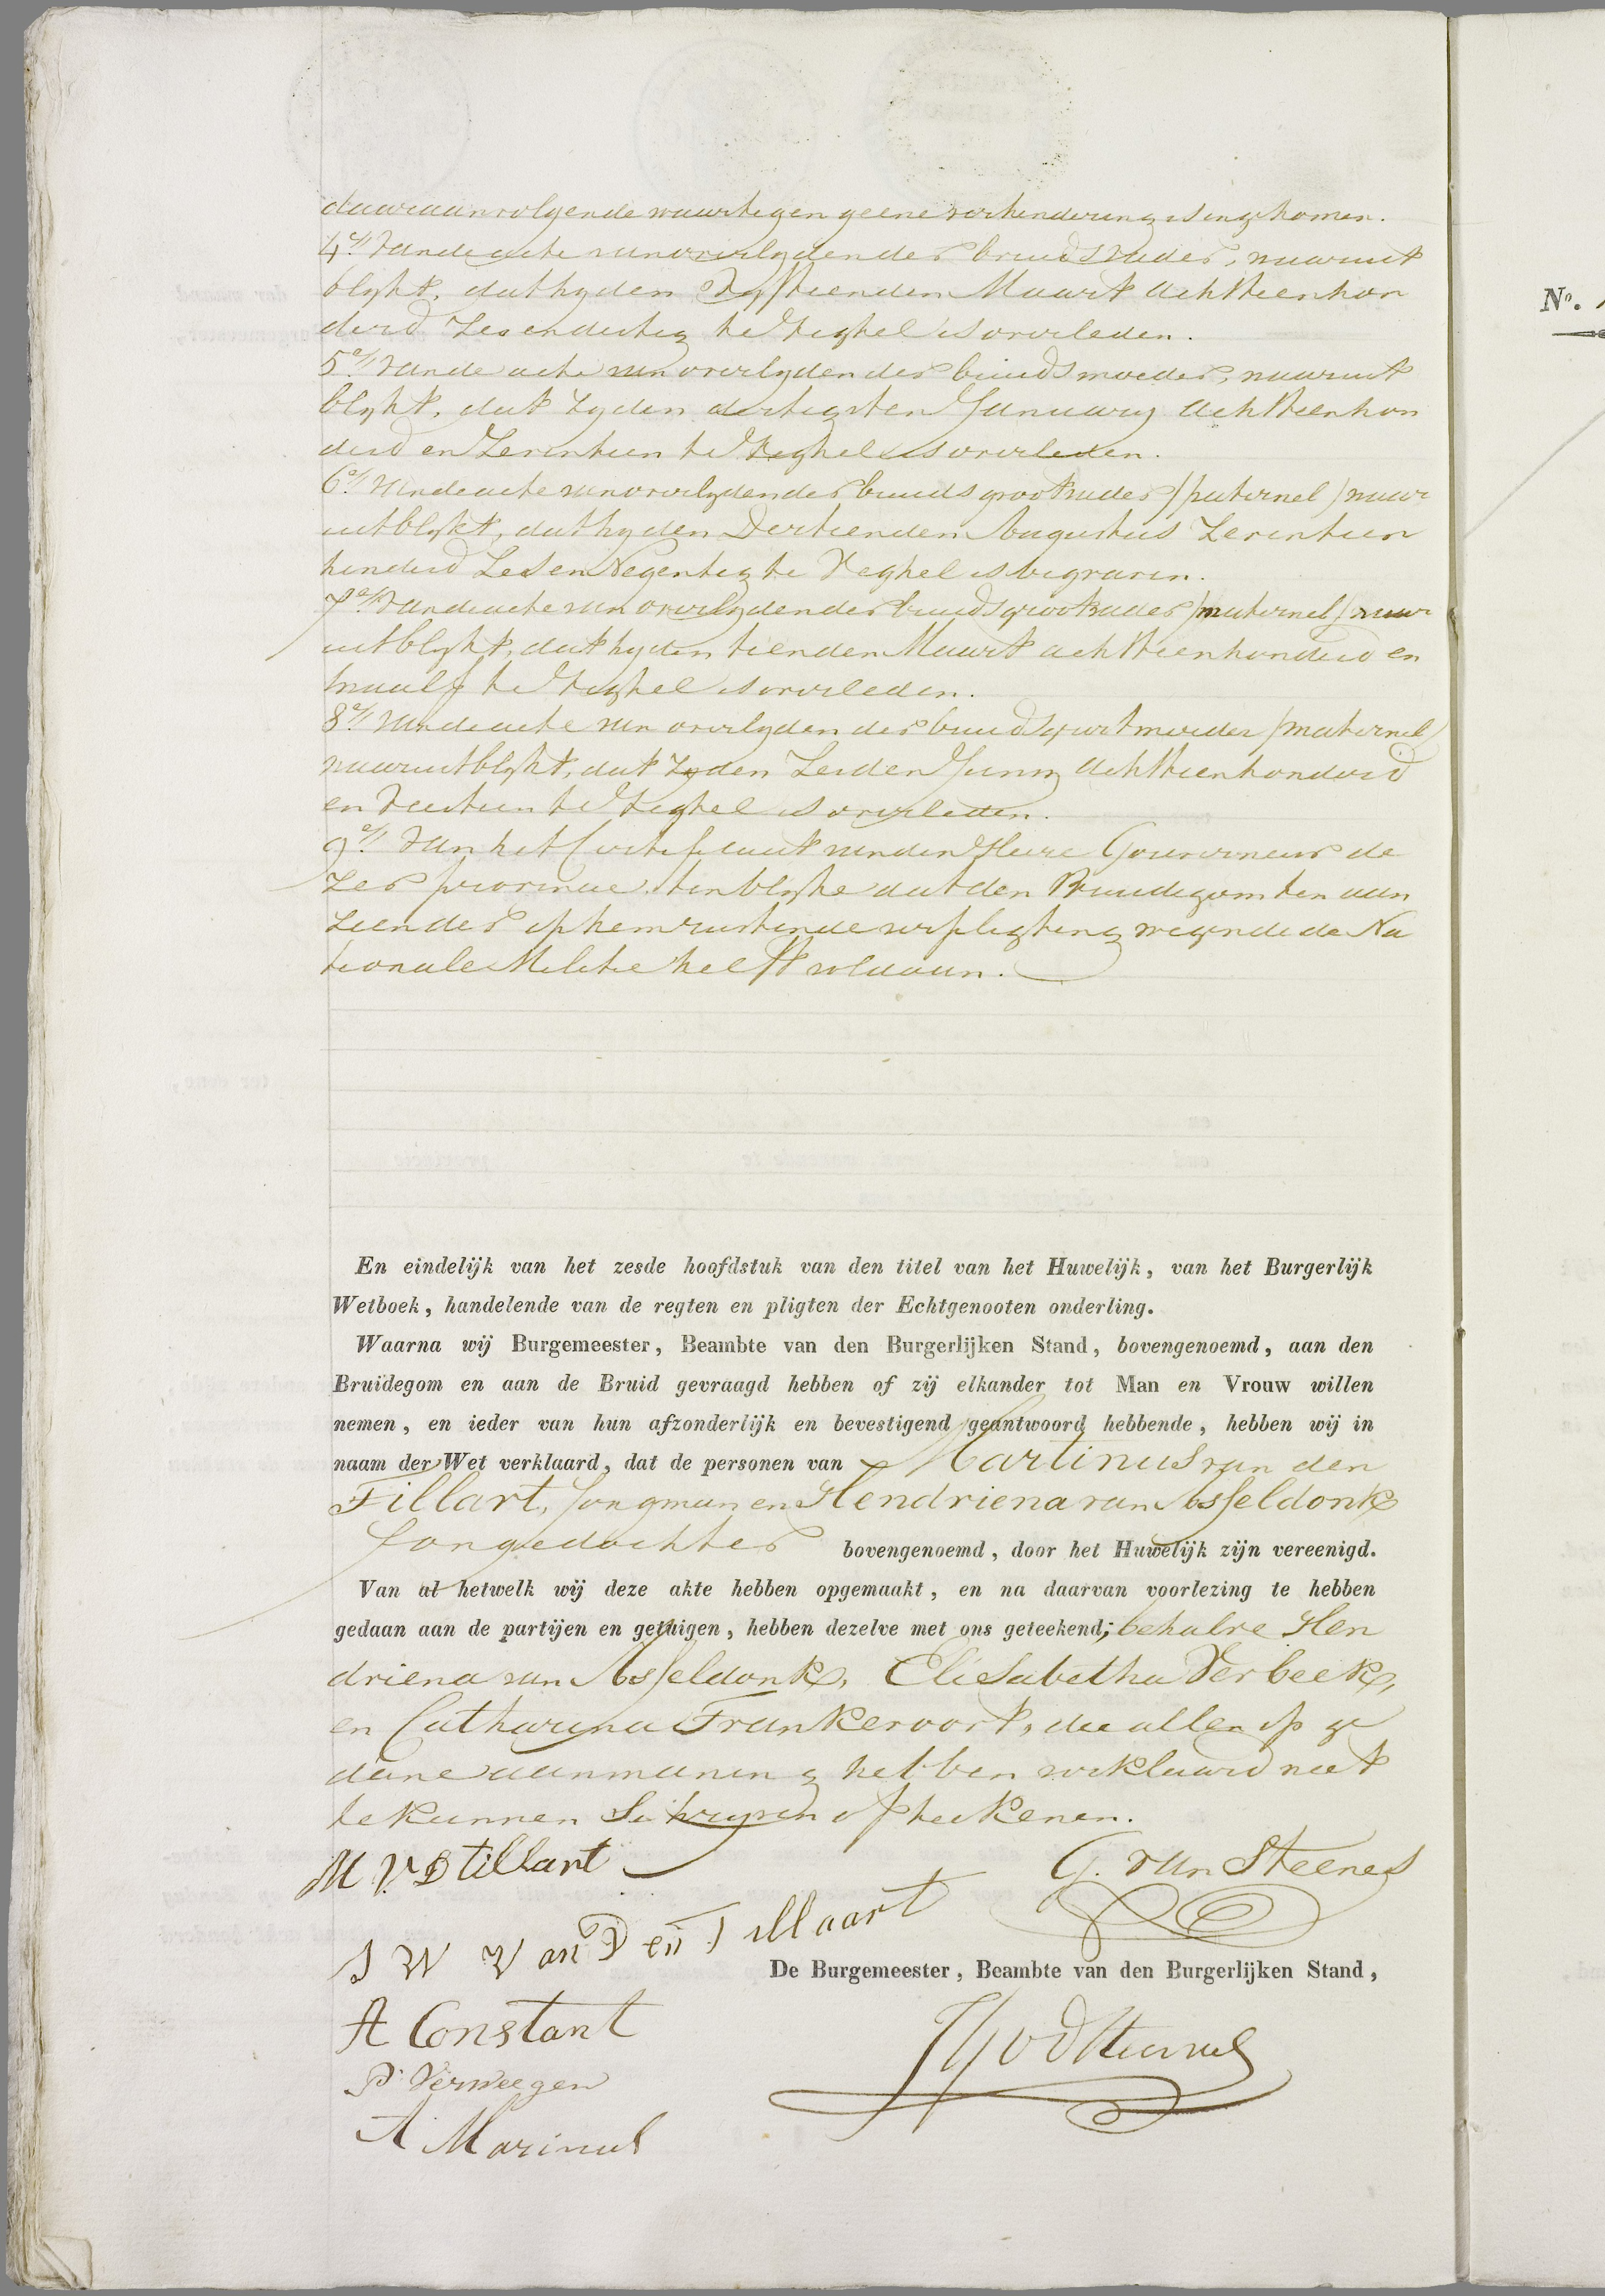 daaraanvolgende waartegen geene verhindering is ingekomen.
4e/ Van de acte van overlyden des bruids vader, waaruit
blykt, dat hy den Vyftienden Maart Achttienhon
derd Zes en dertig te Veghel is overleden.
5e/ Van de acte van overlyden der bruids moeder, waaruit
blykt, dat zy den dertigsten January Achttienhon
derd en Zeventien te Veghel is overleden.
6e/ Van de acte van overlyden des bruids grootvader /paternel/ waar
uit blykt, dat hy den Dertienden Augustus Zeventien
honderd Zes en Negentig te Veghel is begraven.
7e/ Van de acte van overlyden des bruids grootvader /maternel/ waar
uit blykt, dat hy den tienden Maart achttienhonderd en
twaalf te Veghel is overleden.
8e/ Van de acte van overlyden der bruids grootmoeder /maternel/
waaruit blykt, dat zy den Zesden Juny Achttienhonderd
en Veertien te Veghel is overleden.
9e/ Van het Certificaat van den Heere Gouverneur de
zer provincie, ten blyke dat den Bruidegom ten aan
zien der op hem rustende verpligting wegens de Na
tionale Militie heeft voldaan.
En eindelijk van het zesde hoofdstuk van den titel van het Huwelijk, van het Burgerlijk
Wetboek, handelende van de regten en pligten der Echtgenooten onderling.
Waarna wij Burgemeester, Beambte van den Burgerlijken Stand, bovengenoemd, aan den
Bruidegom en aan de Bruid gevraagd hebben of zij elkander tot Man en Vrouw willen
nemen, en ieder van hun afzonderlijk en bevestigend geantwoord hebbende, hebben wij in
naam der Wet verklaard, dat de personen van Martinus van den
Tillart, Jongman en Hendriena van Asseldonk
Jongedochter bovengenoemd, door het Huwelijk zijn vereenigd.
Van al hetwelk wij deze akte hebben opgemaakt, en na daarvan voorlezing te hebben
gedaan aan de partijen en getuigen, hebben dezelve met ons geteekend; behalve Hen
driena van Asseldonk, Elisabetha Verbeek,
en Catharina Frankevoort, die allen op ge
dane aanmaning hebben verklaard niet
te kunnen Schryven of teekenen.
M V D tillart
G. van Steenes
J W Van Den Tillaart
De Burgemeester, Beambte van den Burgerlijken Stand,
A Constant
P. Verweegen
A Marinus
No.